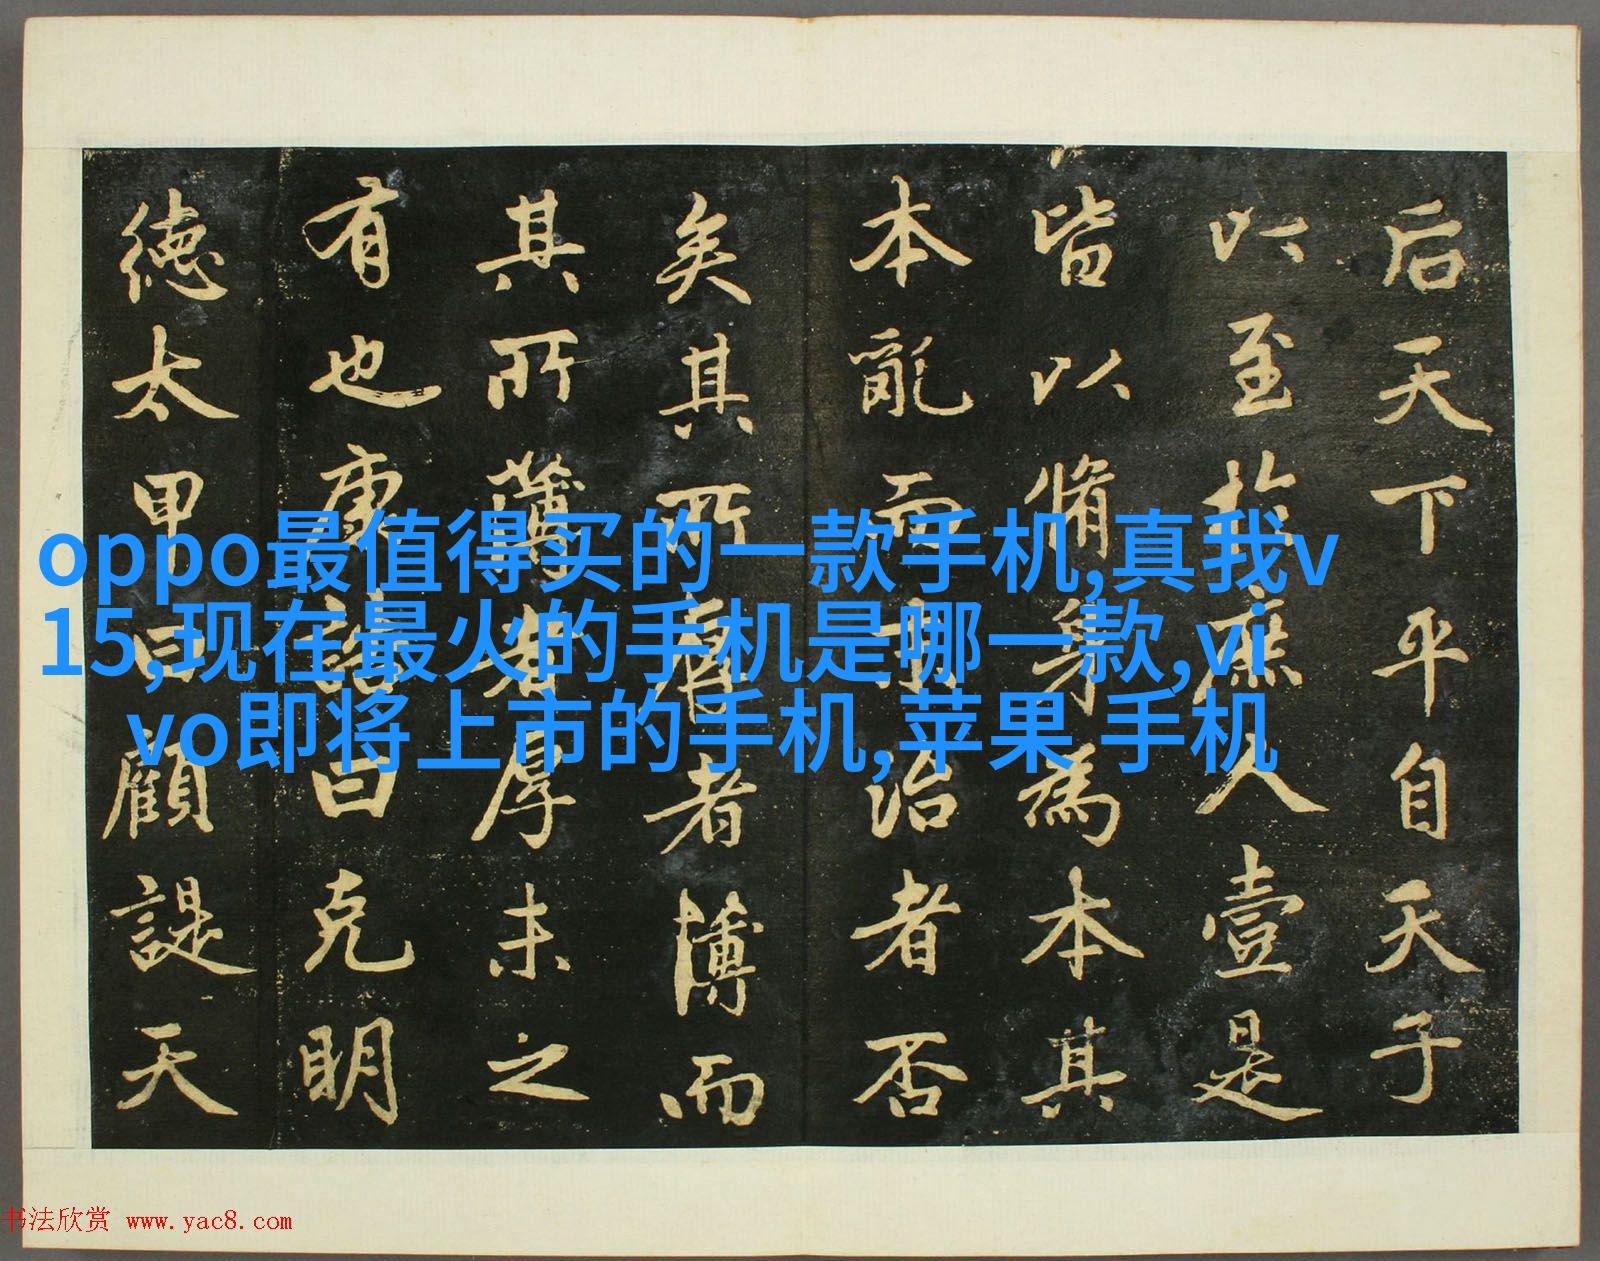 后天下平自天子
以至於庶人壹是
皆以脩身為本其
本亂而末治者否
矣其所厚者薄而
其所薄者厚未之
有也康誥曰克明
德太甲曰顧諟天
oppo最值得买的一款手机,真我v
15,现在最火的手机是哪一款,vi
vo即将上市的手机,苹果 手机
书法欣赏 www.yac8.com